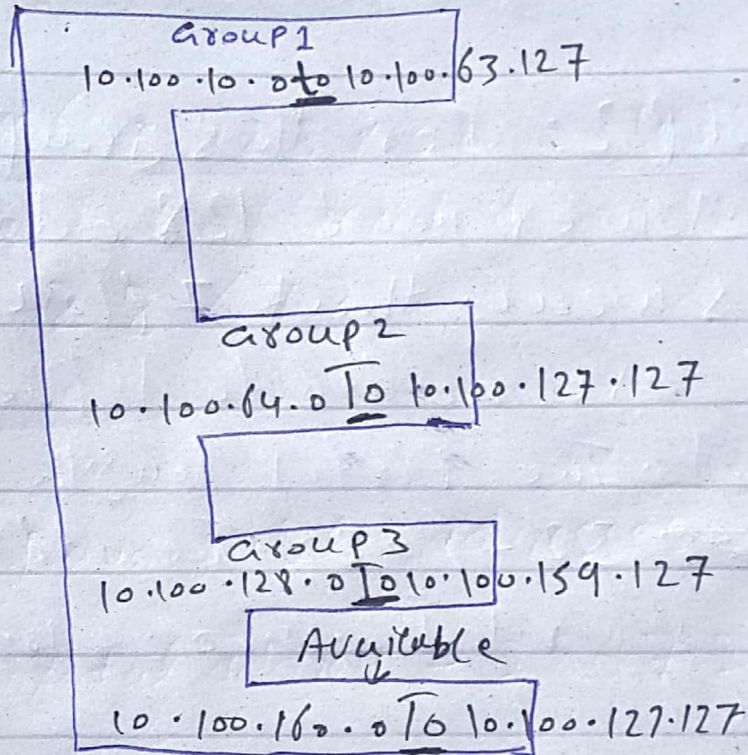 Group 1
10.100.10.0 to 10.100.63.127
Group 2
10.100.64.0 To 10.100.127.127
Group 3
10.100.128.0 To 10.100.159.127
Available
10.100.160.0 To 10.100.127.127